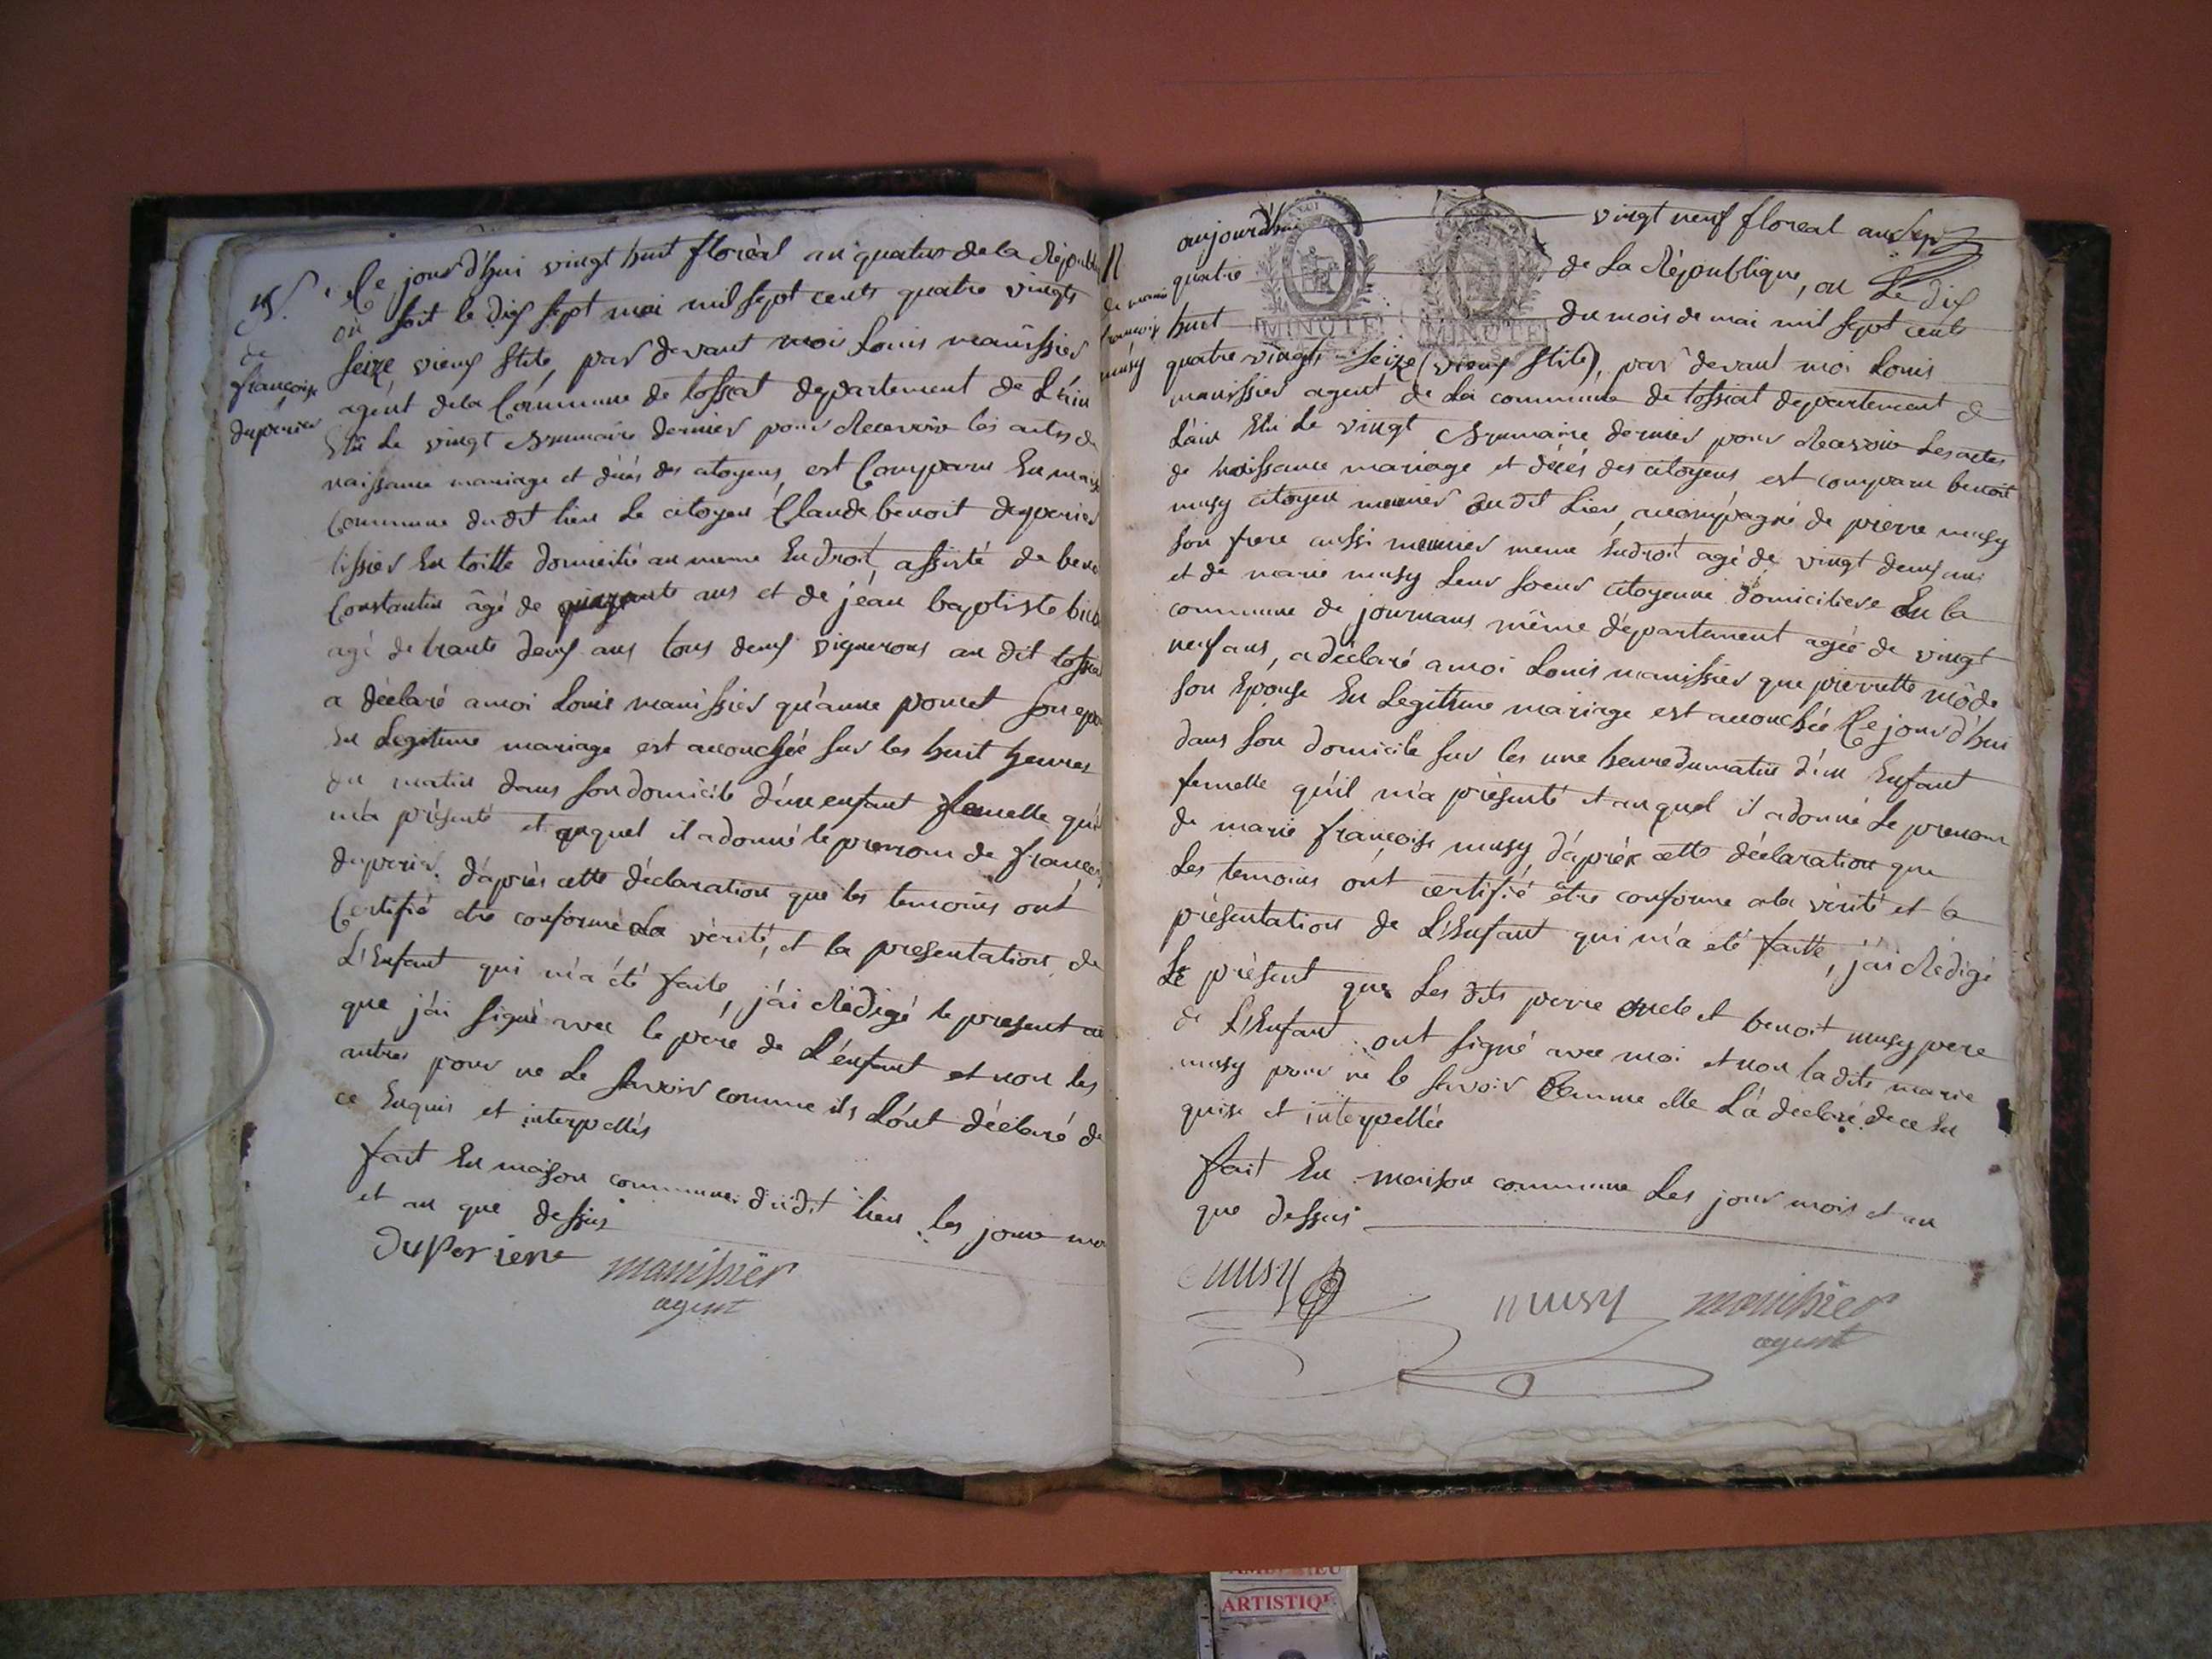 N.
de
françoise
duperier
Ce jourd'hui vingt huit floréal an quatre de la Républi
ou soit le dix sept mai mil sept cents quatre vingts
seize, vieux stile, par devant moi Louis manissier
agent de la Commune de tossiat departement de L'ain
Elû Le vingt Brumaire dernier pour Recevoir les actes de
naissance mariage et décés des citoyens, est Comparu En maiso
Commune du dit lieu Le citoyen Claude benoit duperier
tissier En toille domicilié au meme Endroit, assisté de beno
Constantin âgé de ans et de jean baptiste
agé de trante deux ans tous deux vignerons au dit tossia
a déclaré a moi Louis manissier qu'anne poncet son epou
En Legitime mariage est accouchée sur les huit heures
du matin dans son domicile d'un enfant femelle qu'i
m'a présenté et auquel il a donné le prenom de françois
duperier. d'après cette déclaration que les temoins ont
Certifié etre conforme a La vérité, et la presentation de
L'Enfant qui m'a été faite, j'ai Rédigé le present
que j'ai signé avec le pere de L'enfant et non les
autres pour ne Le savoir comme ils L'ont déclaré de
ce Enquis et interpellés
fait En maison commune du dit lieu les jour mo
et an que dessus
duperier manissier
agent
N
de marie
françoise
musy
aujourd'hui vingt neuf floreal an
quatre de La République, ou Le dix
huit du mois de mai mil sept cents
MINUTE MINUTE
quatre vingts seize (vieux stile), par devant moi Louis
manissier agent de La commune de tossiat departement de
L'ain Elu Le vingt Brumaire dernier pour Recevoir Les actes
de naissance mariage et décés des citoyens est comparu benoit
musy citoyen meunier du dit Lieu, accompagné de pierre musy
son frere aussi meunier meme Endroit agé de vingt deux ans
et de marie musy Leur soeur citoyenne domiciliere En la
commune de journans même département agée de vingt
neuf ans, a déclaré a moi Louis manissier que pierrette
son Epouse En Legitime mariage est accouchée Ce jourd'hui
dans son domicile sur les une heure du matin d'un Enfant
femelle qu'il m'a présenté et auquel il a donné Le prenom
de marie françoise musy, d'après cette déclaration que
Les temoins ont certifié être conforme a la vérité et la
présentation de L'Enfant qui m'a eté faitte, j'ai Rédigé
Le présent que Les dits pierre oncle et benoit musy pere
de L'Enfant ont signé avec moi et non la dite marie
musy pour ne le savoir Comme elle L'a déclaré de ce En
quise et interpellée
fait En maison commune Les jour mois et an
que dessus
musy musy manissier
agent
ARTISTIQU